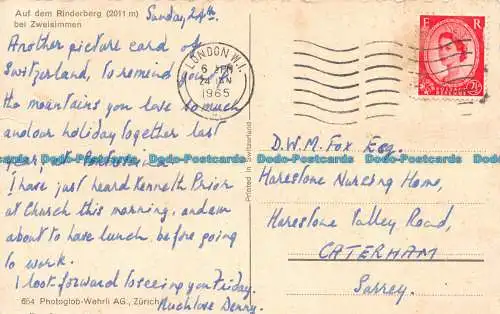 Auf dem Rinderberg (2011 m)
bei Zweisimmen
Sunday, 24th.
Another picture card of
Switzerland, to remind you of
the mountains you love so much
and our holiday together last
year, at
I have just heard Kenneth Prior
at Church this morning, and am
about to have lunch before going
to work.
I look forward to seeing you Friday.
Much love Denny.
654 Photoglob-Wehrli AG., Zürich
Printed in Switzerland
LONDON W.1.
6 PM
24 JAN
1965
E R
D.W.M. Fox Esq.
Harestone Nursing Home,
Harestone Valley Road,
CATERHAM
Surrey.
Dodo-Postcards Dodo-Postcards Dodo-Postcards Dodo-Postcards